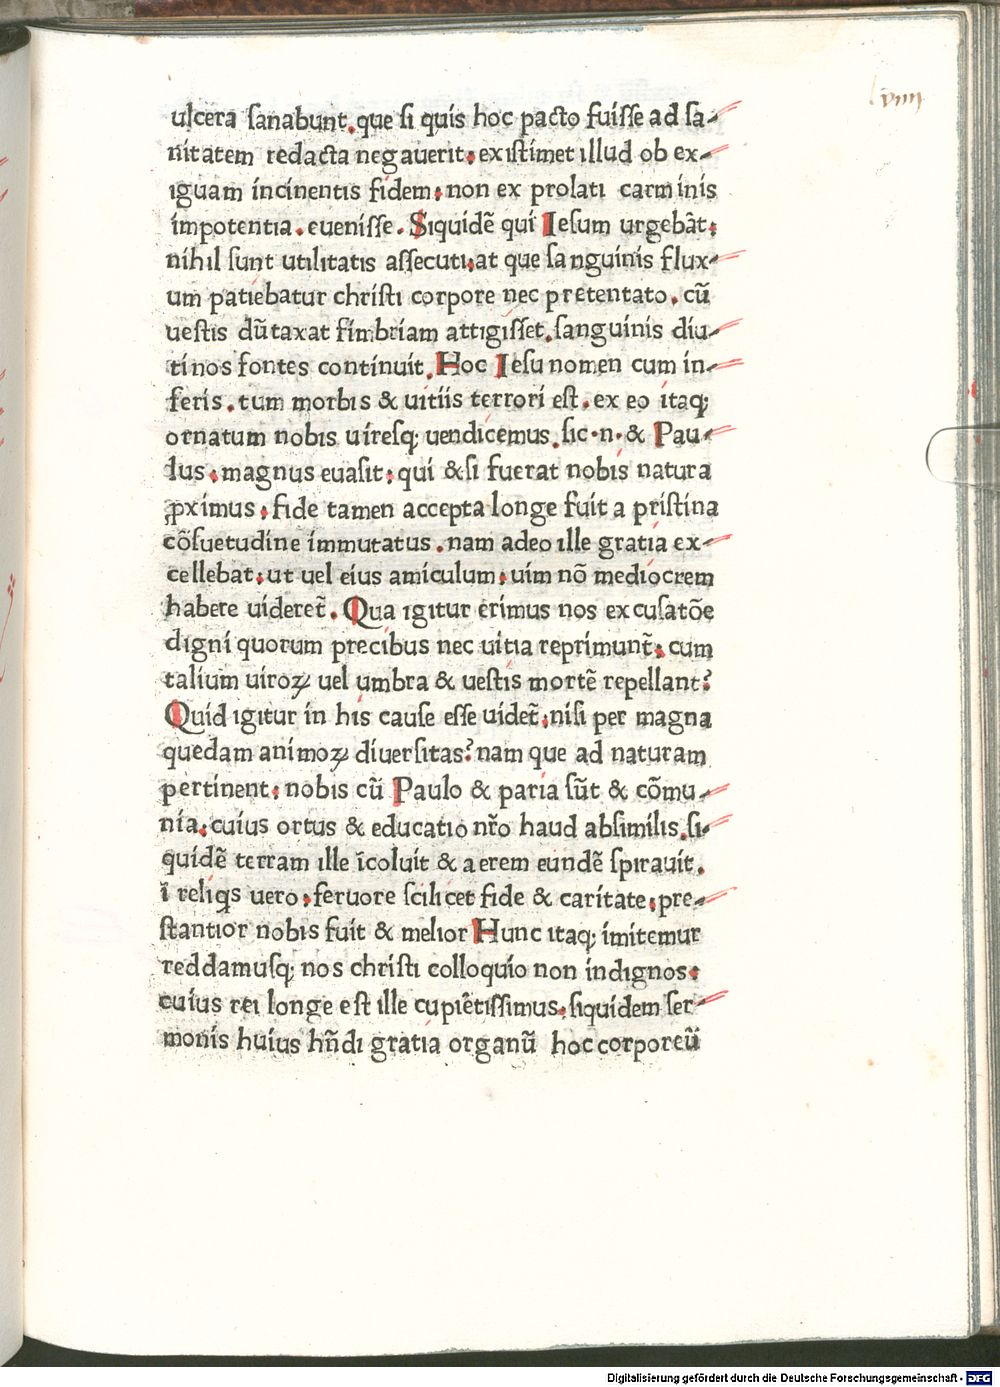 lviiij
ulcera ſanabunt.que ſi quis hoc pacto fuiſſe ad ſa-
nitatem redacta negauerit: exiſtimet illud ob ex-
iguam incinentis fidem: non ex prolati carminis
impotentia. eueniſſe. Siquidē qui Ieſum urgebāt:
nihil ſunt utilitatis aſſecuti:at que ſanguinis flux-
um patiebatur chriſti corpore nec pretentato. cū
ueſtis dūtaxat fimbriam attigiſſet. ſanguinis diu-
tinos fontes continuit. Hoc Ieſu nomen cum in-
feris. tum morbis & uitiis terrori eſt. ex eo itaqꝫ
ornatum nobis uireſqꝫ uendicemus. ſic.n. & Pau-
lus: magnus euaſit: qui &ſi fuerat nobis natura
ꝓximus: fide tamen accepta longe fuit a priſtina
cōſuetudine immutatus. nam adeo ille gratia ex-
cellebat: ut uel eius amiculum: uim nō mediocrem
habere uideret̃. Qua igitur erimus nos excuſatōe
digni quorum precibus nec uitia reprimunt̃: cum
talium uiroꝝ uel umbra & ueſtis mortē repellant?
Quid igitur in his cauſe eſſe uidet̃: niſi per magna
quedam animoꝝ diuerſitas? nam que ad naturam
pertinent: nobis cū Paulo & paria ſūt & cōmu-
nia: cuius ortus & educatio nr̃o haud abſimilis. ſi-
quidē terram ille īcoluit & aerem eundē ſpirauit.
ī reliqs uero: feruore ſcilicet fide & caritate: pre-
ſtantior nobis fuit & melior Hunc itaqꝫ imitemur
reddamuſqꝫ nos chriſti colloquio non indignos:
cuius rei longe eſt ille cupiētiſſimus: ſiquidem ſer-
monis huius hñdi gratia organū hoc corporeū
Digitalisierung gefördert durch die Deutsche Forschungsgemeinschaft - DFG